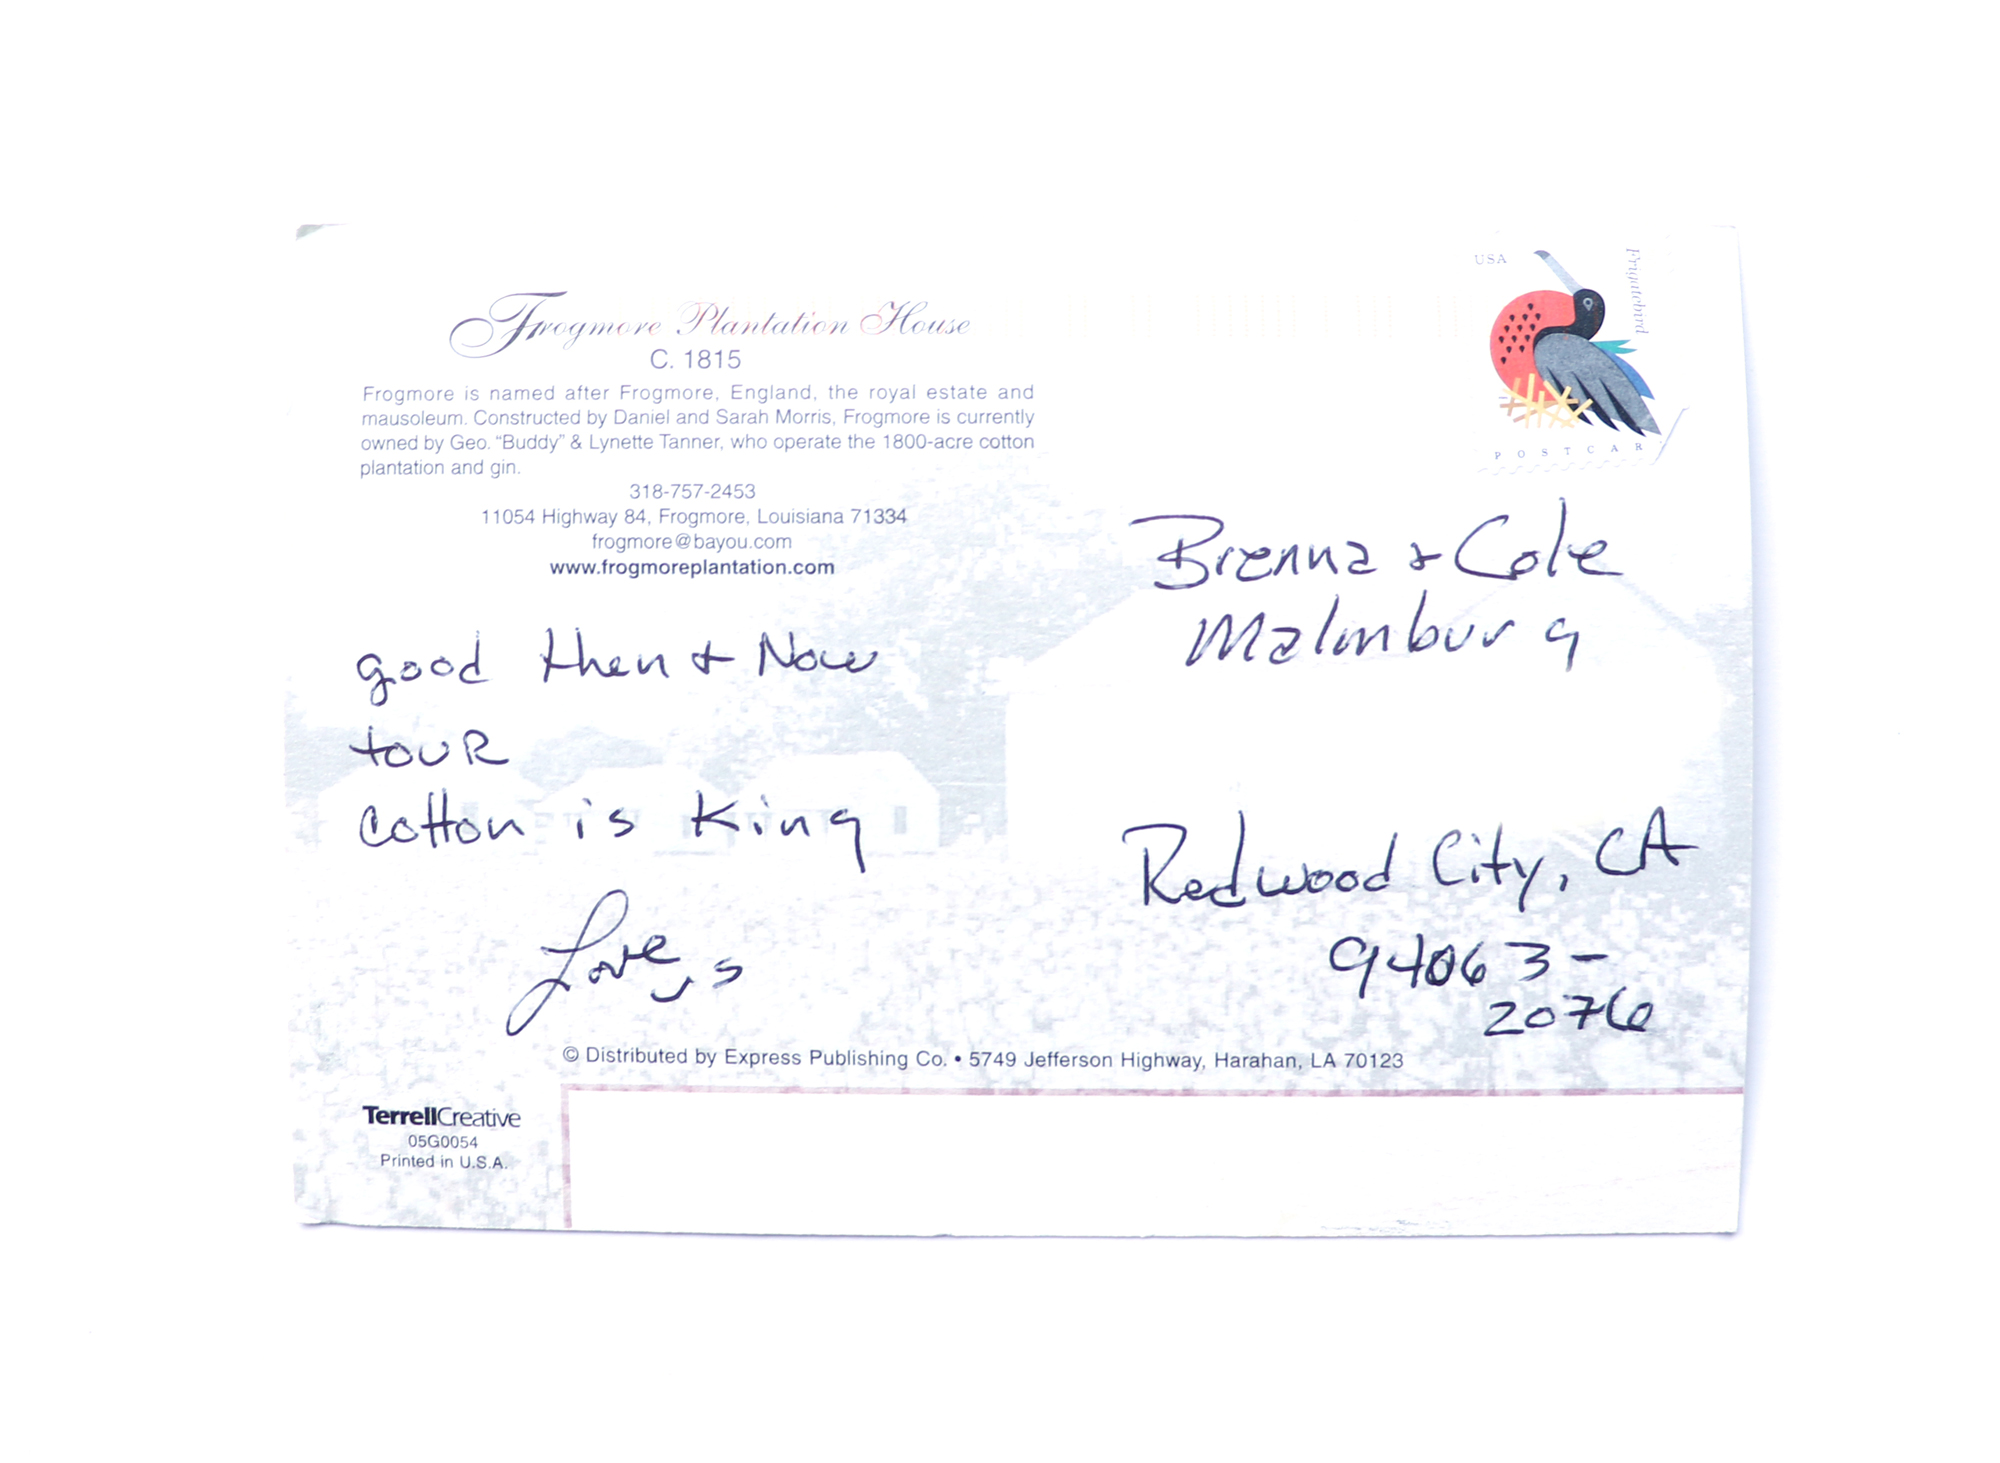 Frogmore Plantation House
C. 1815
Frogmore is named after Frogmore, England, the royal estate and
mausoleum. Constructed by Daniel and Sarah Morris, Frogmore is currently
owned by Geo. “Buddy” & Lynette Tanner, who operate the 1800-acre cotton
plantation and gin.
318-757-2453
11054 Highway 84, Frogmore, Louisiana 71334
frogmore@bayou.com
www.frogmoreplantation.com
good then + Now
tour
cotton is King
Love, s
USA
Frigatebird
POSTCAR
Brenna + Cole
Malmburg
Redwood City, CA
94063-
2076
© Distributed by Express Publishing Co. • 5749 Jefferson Highway, Harahan, LA 70123
TerrellCreative
05G0054
Printed in U.S.A.